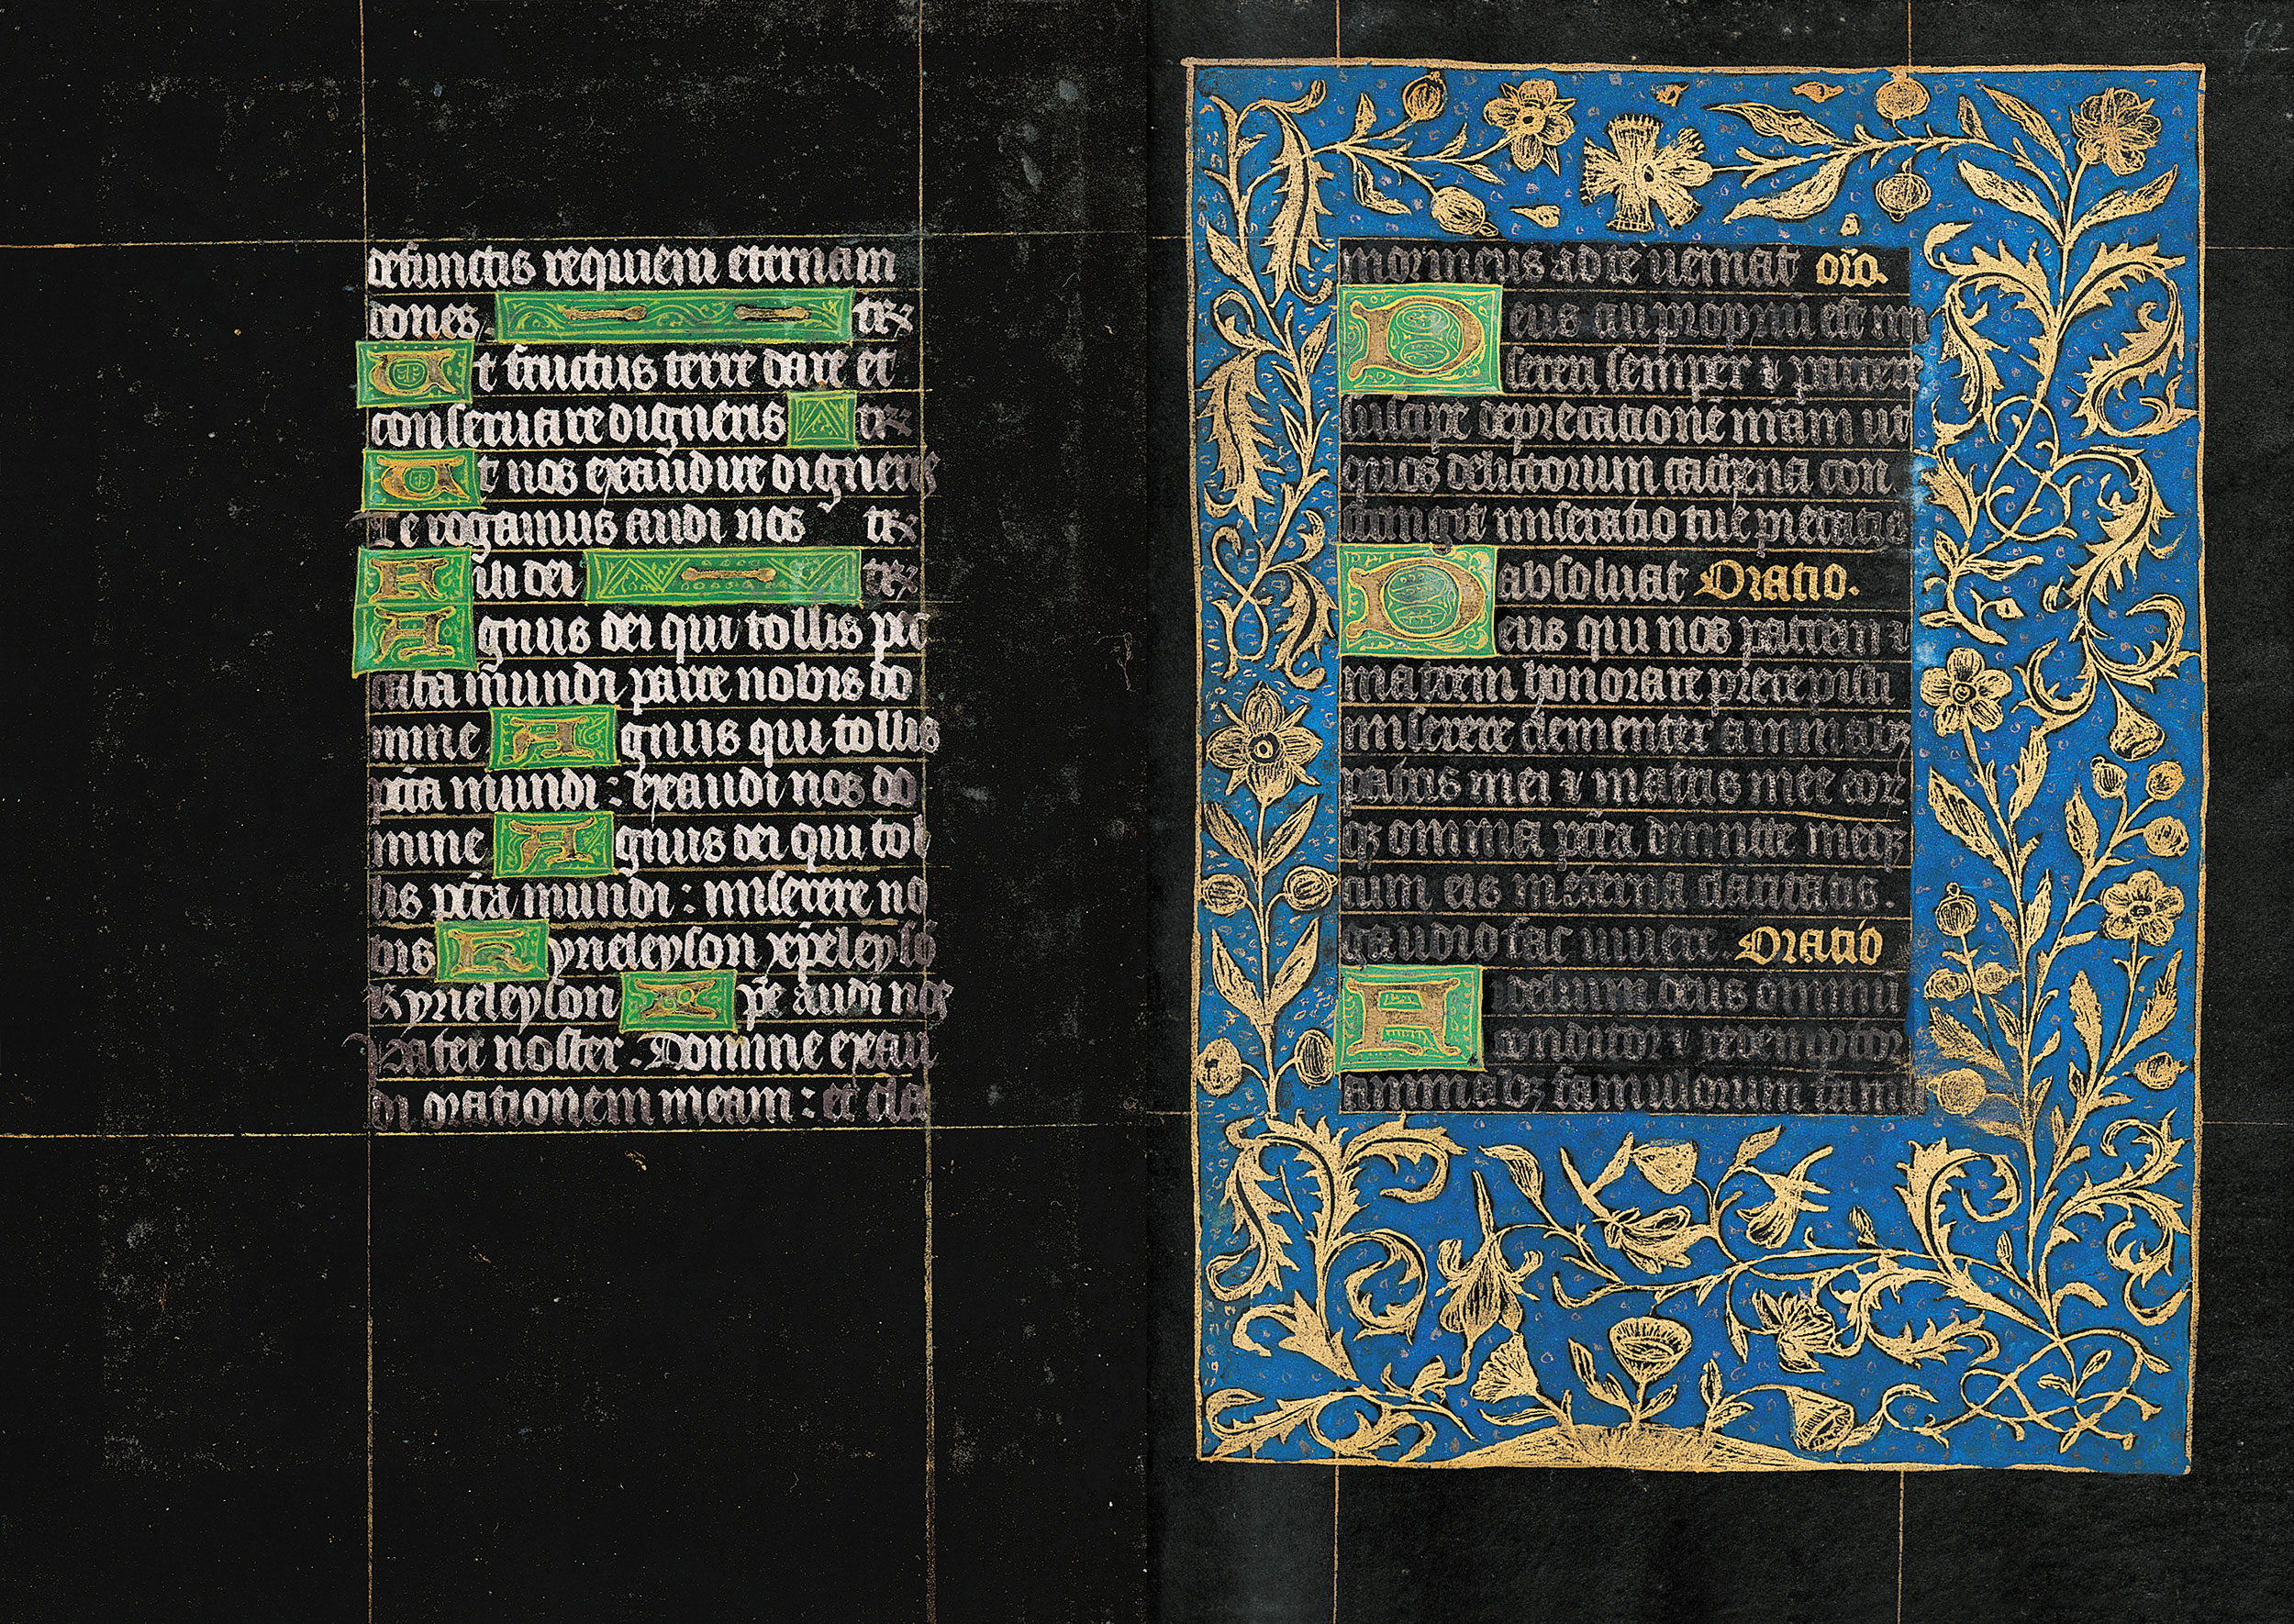 defunctis requiem eternam
dones te r
Ut fructus terre dare et
conseruare digneris te r
Ut nos exaudire digneris
Te rogamus audi nos te r
Fili dei te r
Agnus dei qui tollis pec
cata mundi parce nobis do
mine Agnus qui tollis
pctā mundi : exaudi nos do
mine Agnus dei qui tol
lis pctā mundi : miserere no
bis Kyrieleyson xp̄eleysō
Kyrieleyson Xp̄e audi nos
Pater noster . Domine exau
di orationem meam : et cla
mor meus ad te ueniat or̄o.
Deus cui propriū est mi
sereri semper ⁊ parcere
suscipe deprecationē nr̄am ut
quos delictorum cathena con
stringit miseratio tue pietatis
absoluat Oratio.
Deus qui nos patrem ⁊
matrem honorare precepisti
miserere clementer animabꝫ
patris mei ⁊ matris mee eor
qꝫ omnia pctā dimitte meqꝫ
cum eis in eterna claritatis .
gaudio fac uiuere . Oratio
Fidelium deus omniū
conditor ⁊ redemptor
animabꝫ famulorum famu